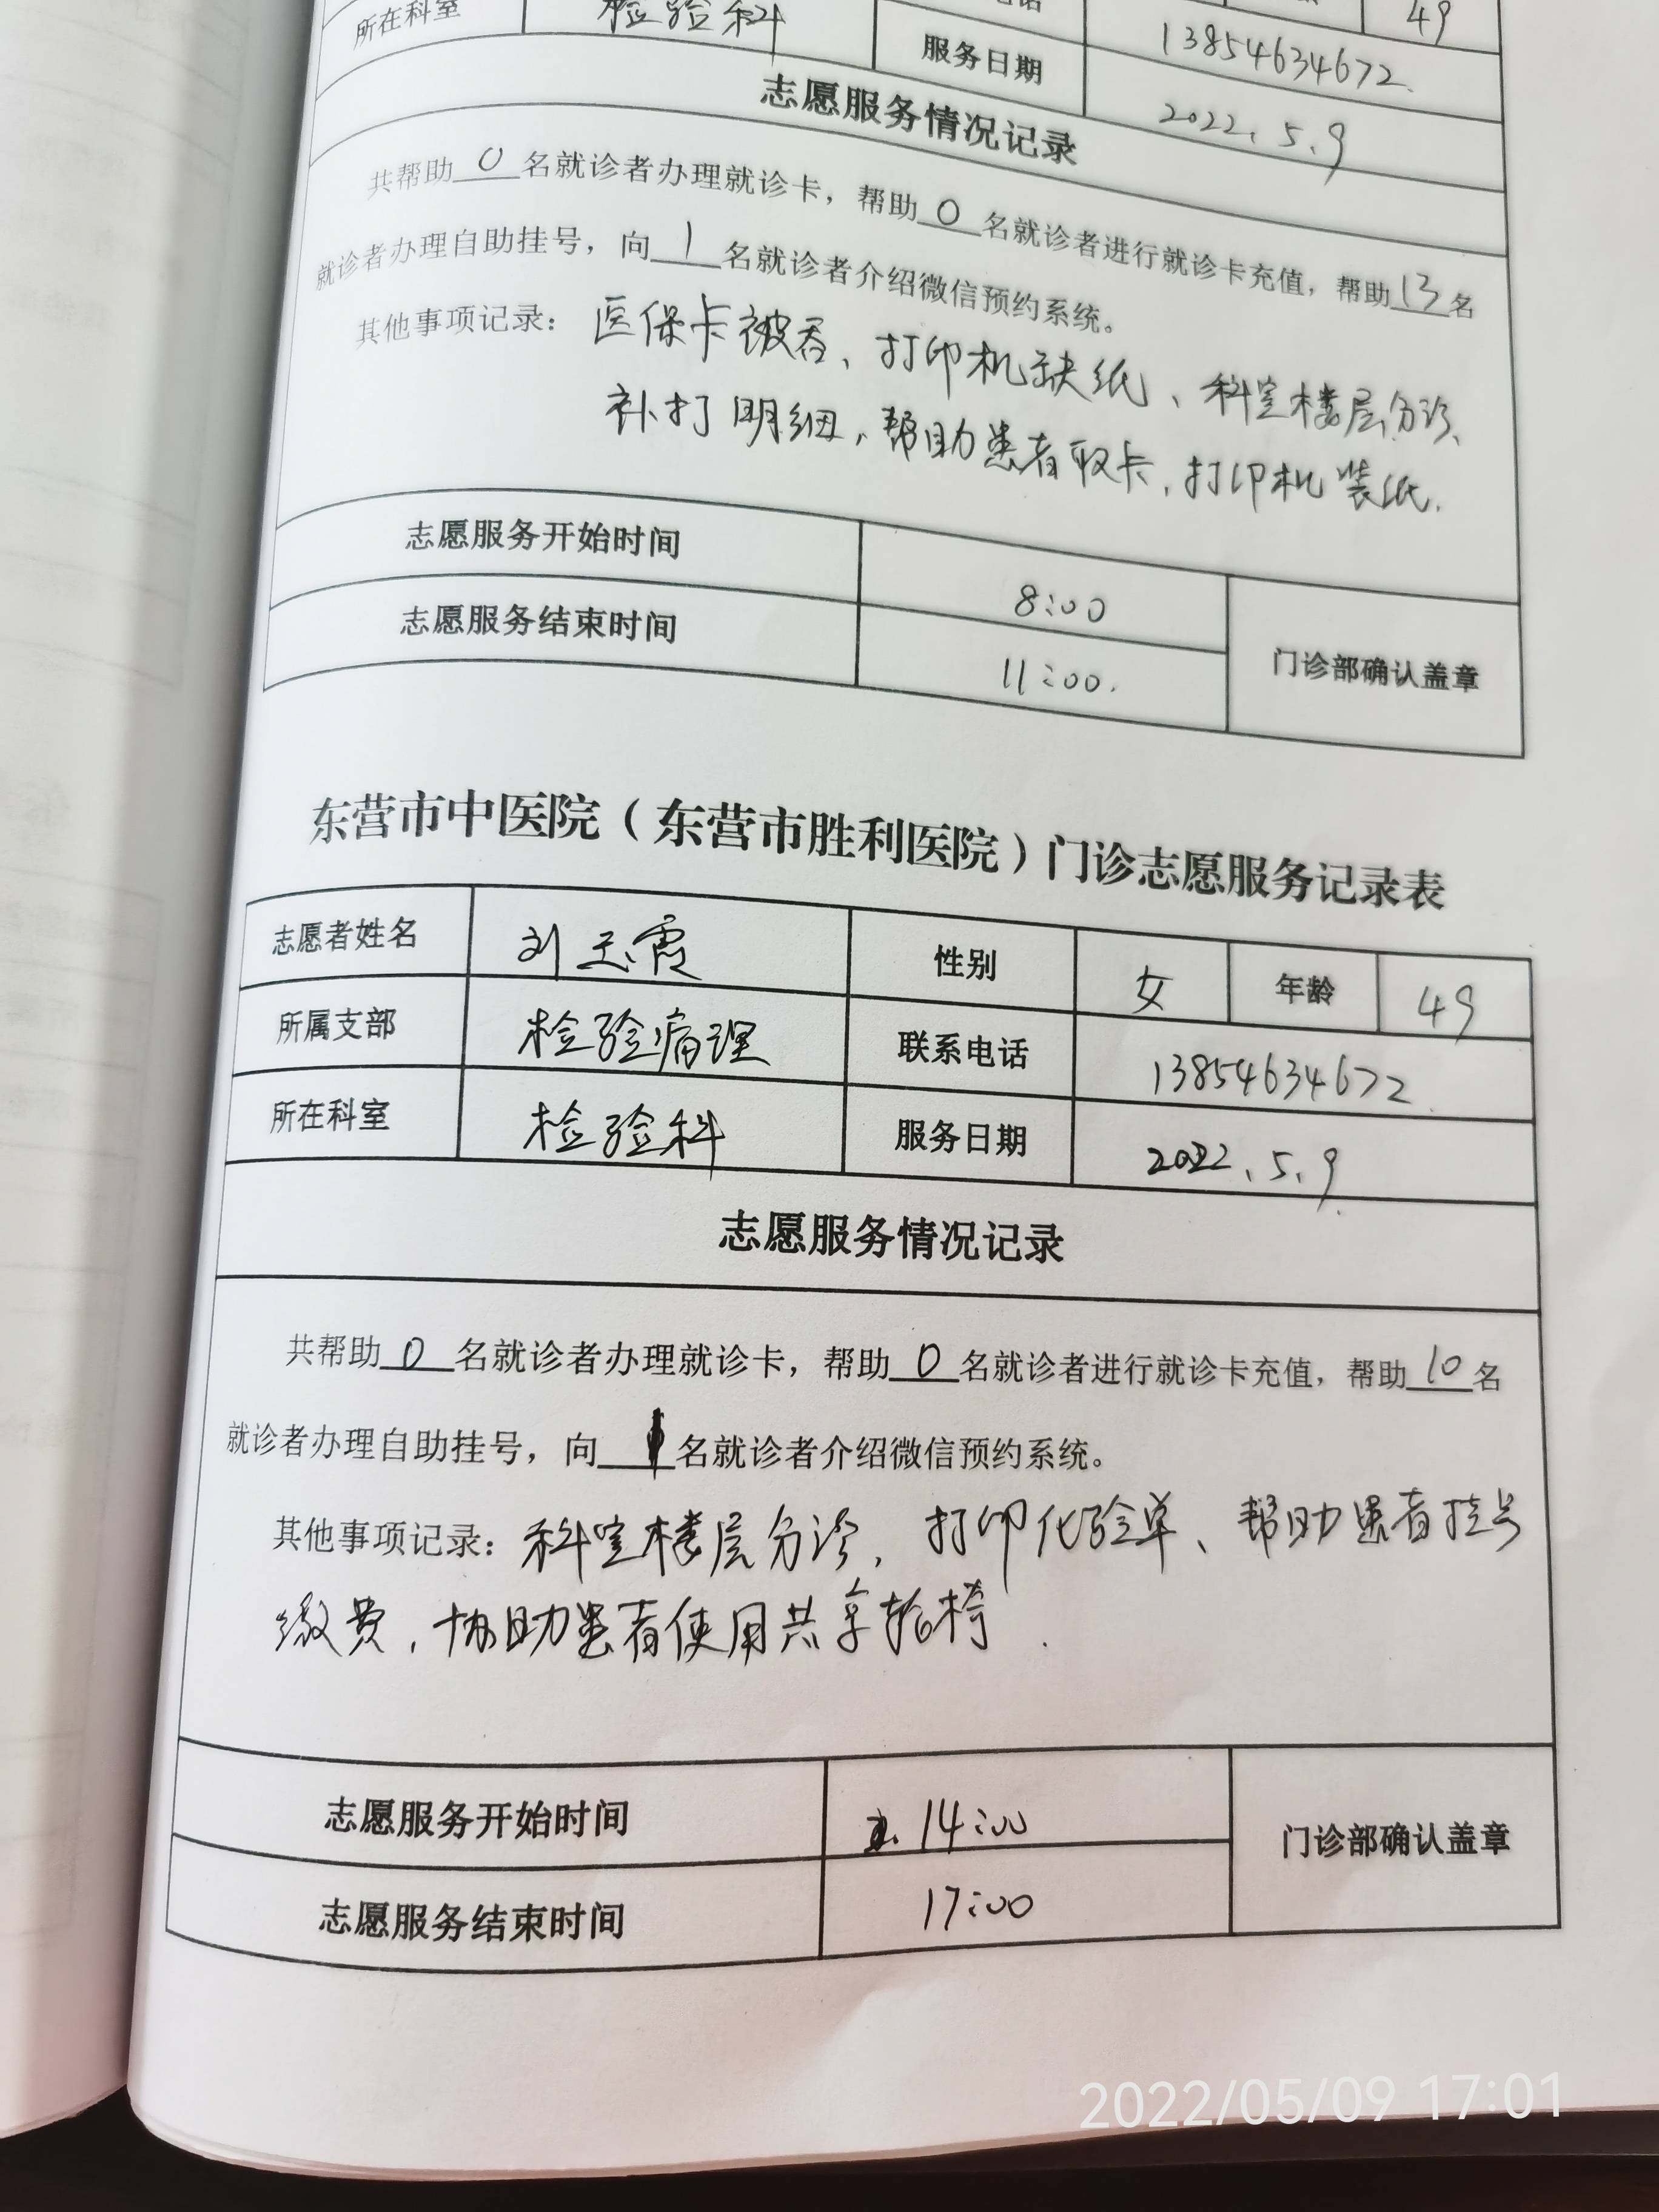 所在科室 检验科 49
服务日期 13854634672.
2022.5.9
志愿服务情况记录
共帮助 0 名就诊者办理就诊卡，帮助 0 名就诊者进行就诊卡充值，帮助 13 名
就诊者办理自助挂号，向 1 名就诊者介绍微信预约系统。
其他事项记录：医保卡被吞、打印机缺纸、科室楼层分诊、
补打明细，帮助患者取卡，打印机装纸.
志愿服务开始时间 8:00
志愿服务结束时间 11:00. 门诊部确认盖章
东营市中医院（东营市胜利医院）门诊志愿服务记录表
志愿者姓名 刘玉霞 性别 女 年龄 49
所属支部 检验病理 联系电话 13854634672.
所在科室 检验科 服务日期 2022.5.9.
志愿服务情况记录
共帮助 0 名就诊者办理就诊卡，帮助 0 名就诊者进行就诊卡充值，帮助 10 名
就诊者办理自助挂号，向 名就诊者介绍微信预约系统。
其他事项记录：科室楼层分诊，打印化验单、帮助患者挂号
缴费，协助患者使用共享轮椅.
志愿服务开始时间 14:00 门诊部确认盖章
志愿服务结束时间 17:00
2022/05/09 17:01